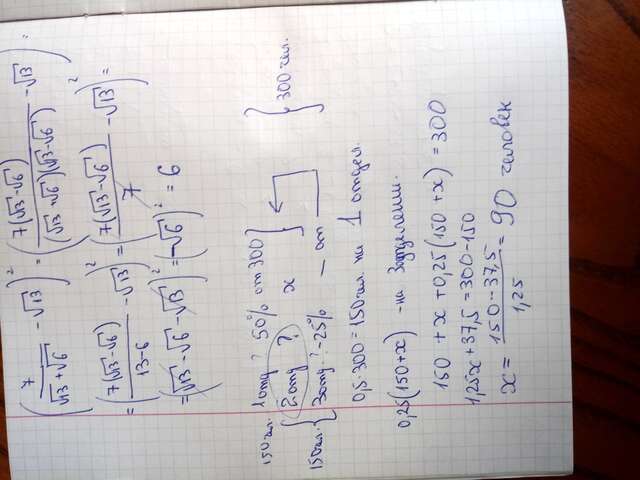 (7/(√13+√6) − √13)² = (7(√13−√6)/((√13+√6)(√13−√6)) − √13)² =
= (7(√13−√6)/(13−6) − √13)² = (7(√13−√6)/7 − √13)² =
= (√13−√6−√13)² = (−√6)² = 6
150 чел. 1 отд ? 50% от 300
2 отд ? x } 300 чел.
150 чел. { 3 отд ? −25% — от
0,5·300=150 чел. на 1 отдел.
0,25(150+x) - на 3 отделении.
150 + x + 0,25(150+x) = 300
1,25x + 37,5 = 300-150
x = (150-37,5)/1,25 = 90 человек